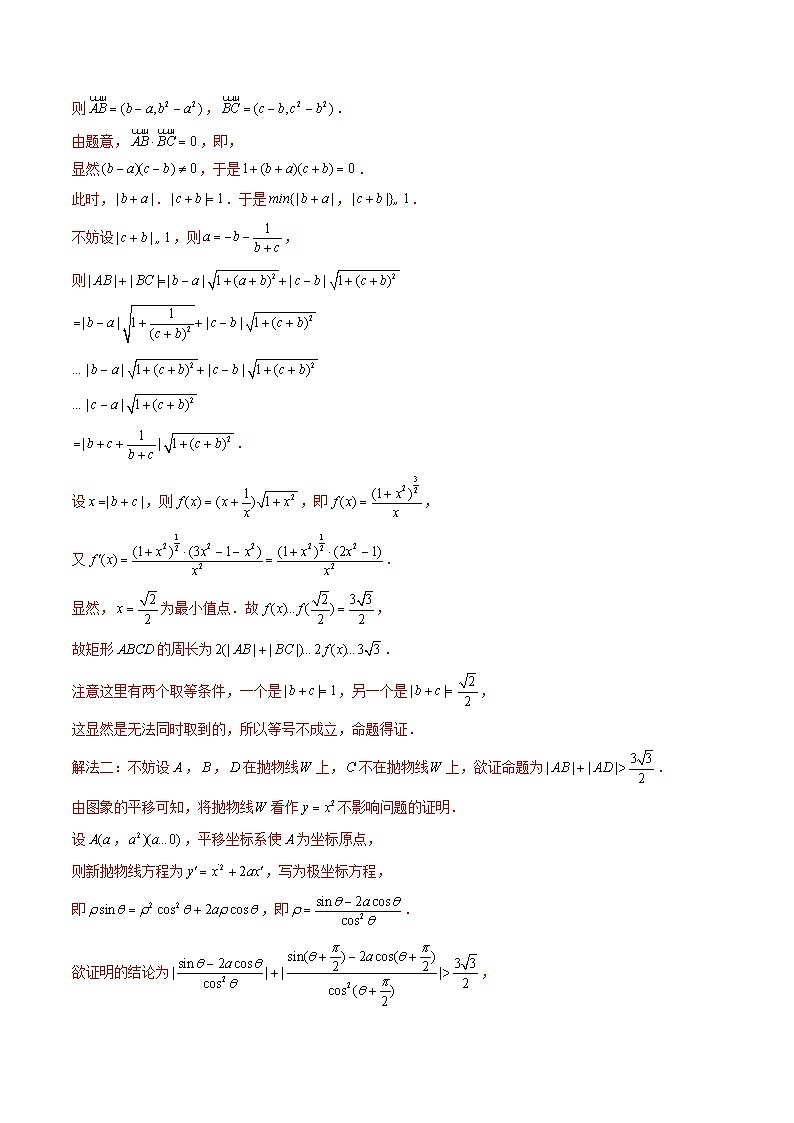 则 AB = (b − a, b² − a²)，BC = (c − b, c² − b²)．
由题意，AB · BC = 0，即，
显然 (b − a)(c − b) ≠ 0，于是 1 + (b + a)(c + b) = 0．
此时，| b + a |．| c + b |= 1．于是 min{| b + a |，| c + b |}„ 1．
不妨设 | c + b |„ 1，则 a = −b − 1/(b + c)，
则 | AB | + | BC |=| b − a | √(1 + (a + b)²) + | c − b | √(1 + (c + b)²)
=| b − a | √(1 + 1/(c + b)²) + | c − b | √(1 + (c + b)²)
… | b − a | √(1 + (c + b)²) + | c − b | √(1 + (c + b)²)
… | c − a | √(1 + (c + b)²)
=| b + c + 1/(b + c) | √(1 + (c + b)²)．
设 x =| b + c |，则 f(x) = (x + 1/x)√(1 + x²)，即 f(x) = (1 + x²)^(3/2)/x，
又 f′(x) = (1 + x²)^(1/2) · (3x² − 1 − x²)/x² = (1 + x²)^(1/2) · (2x² − 1)/x²．
显然，x = √2/2 为最小值点．故 f(x)… f(√2/2) = 3√3/2，
故矩形 ABCD 的周长为 2(| AB | + | BC |)… 2f(x)… 3√3．
注意这里有两个取等条件，一个是 | b + c |= 1，另一个是 | b + c |= √2/2，
这显然是无法同时取到的，所以等号不成立，命题得证．
解法二：不妨设 A，B，D 在抛物线 W 上，C 不在抛物线 W 上，欲证命题为 | AB | + | AD |> 3√3/2．
由图象的平移可知，将抛物线 W 看作 y = x² 不影响问题的证明．
设 A(a，a²)(a…0)，平移坐标系使 A 为坐标原点，
则新抛物线方程为 y′ = x′² + 2ax′，写为极坐标方程，
即 ρsinθ = ρ² cos²θ + 2aρcosθ，即 ρ = (sinθ − 2a cosθ)/cos²θ．
欲证明的结论为 | (sinθ − 2a cosθ)/cos²θ | + | (sin(θ + π/2) − 2a cos(θ + π/2))/cos²(θ + π/2) |> 3√3/2，